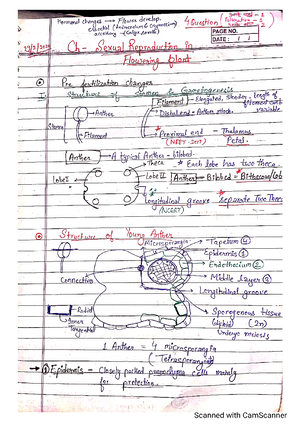 Hormonal changes → Flower develop.
essential (Androecium & Gynoecium)
accessory - (Calyx, corolla)
4 Question
PAGE NO.
DATE: / /
Ch- Sexual Reproduction in
Flowering plant
Pre fertilization changes
Structure of Stamen & Gametogenesis
Filament - Elongated, Slender, length of
filament
variable
Anther
Distal end - Anther attach.
Stamen
Filament
Proximal end - Thalamus,
(NEET-2017) Petal.
Anther → A typical Anther - bilobed.
Theca * Each lobe has two theca
Lobe I
Lobe II
Anther - Bilobed =
Longitudinal groove separate two Theca
(NCERT)
Structure of Young Anther
Microsporangia
Tapetum 4
Epidermis 1
Endothecium 2
Middle Layer 3
Connective
Longitudinal groove
Radial
Inner
Tangential
Sporogenous tissue
(2n)
Undergo meiosis
1 Anther = 4 microsporangia
(Tetrasporangiate)
→ 1 Epidermis - Closely packed parenchyma cells mainly
for protection.
Scanned with CamScanner